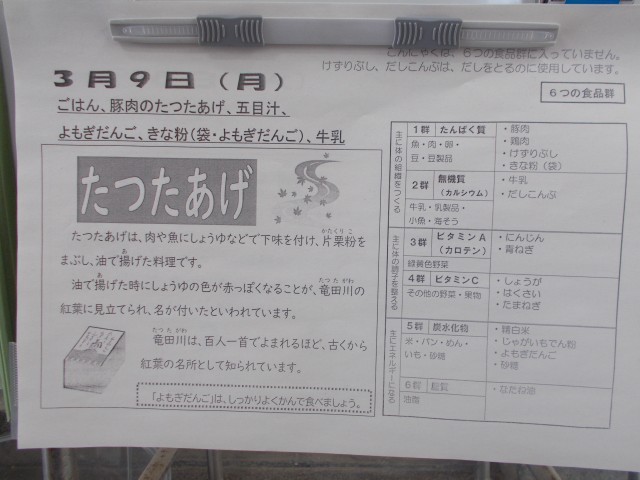 こんにゃくは、6つの食品群に入っていません。
けずりぶし、だしこんぶは、だしをとるのに使用しています。
3月9日(月)
ごはん、豚肉のたつたあげ、五目汁、
よもぎだんご、きな粉(袋・よもぎだんご)、牛乳
たつたあげ
たつたあげは、肉や魚にしょうゆなどで下味を付け、片栗粉を
かたくりこ
まぶし、油で揚げた料理です。
あ
油で揚げた時にしょうゆの色が赤っぽくなることが、竜田川の
あ
たつたがわ
紅葉に見立てられ、名が付いたといわれています。
竜田川は、百人一首でよまれるほど、古くから
たつたがわ
紅葉の名所として知られています。
「よもぎだんご」は、しっかりよくかんで食べましょう。
6つの食品群
主に体の組織をつくる
1群 たんぱく質
魚・肉・卵・
豆・豆製品
・豚肉
・鶏肉
・けずりぶし
・きな粉(袋)
2群 無機質
(カルシウム)
牛乳・乳製品・
小魚・海そう
・牛乳
・だしこんぶ
主に体の調子を整える
3群 ビタミンA
(カロテン)
緑黄色野菜
・にんじん
・青ねぎ
4群 ビタミンC
その他の野菜・果物
・しょうが
・はくさい
・たまねぎ
主にエネルギーになる
5群 炭水化物
米・パン・めん・
いも・砂糖
・精白米
・じゃがいもでん粉
・よもぎだんご
・砂糖
6群 脂質
油脂
・なたね油